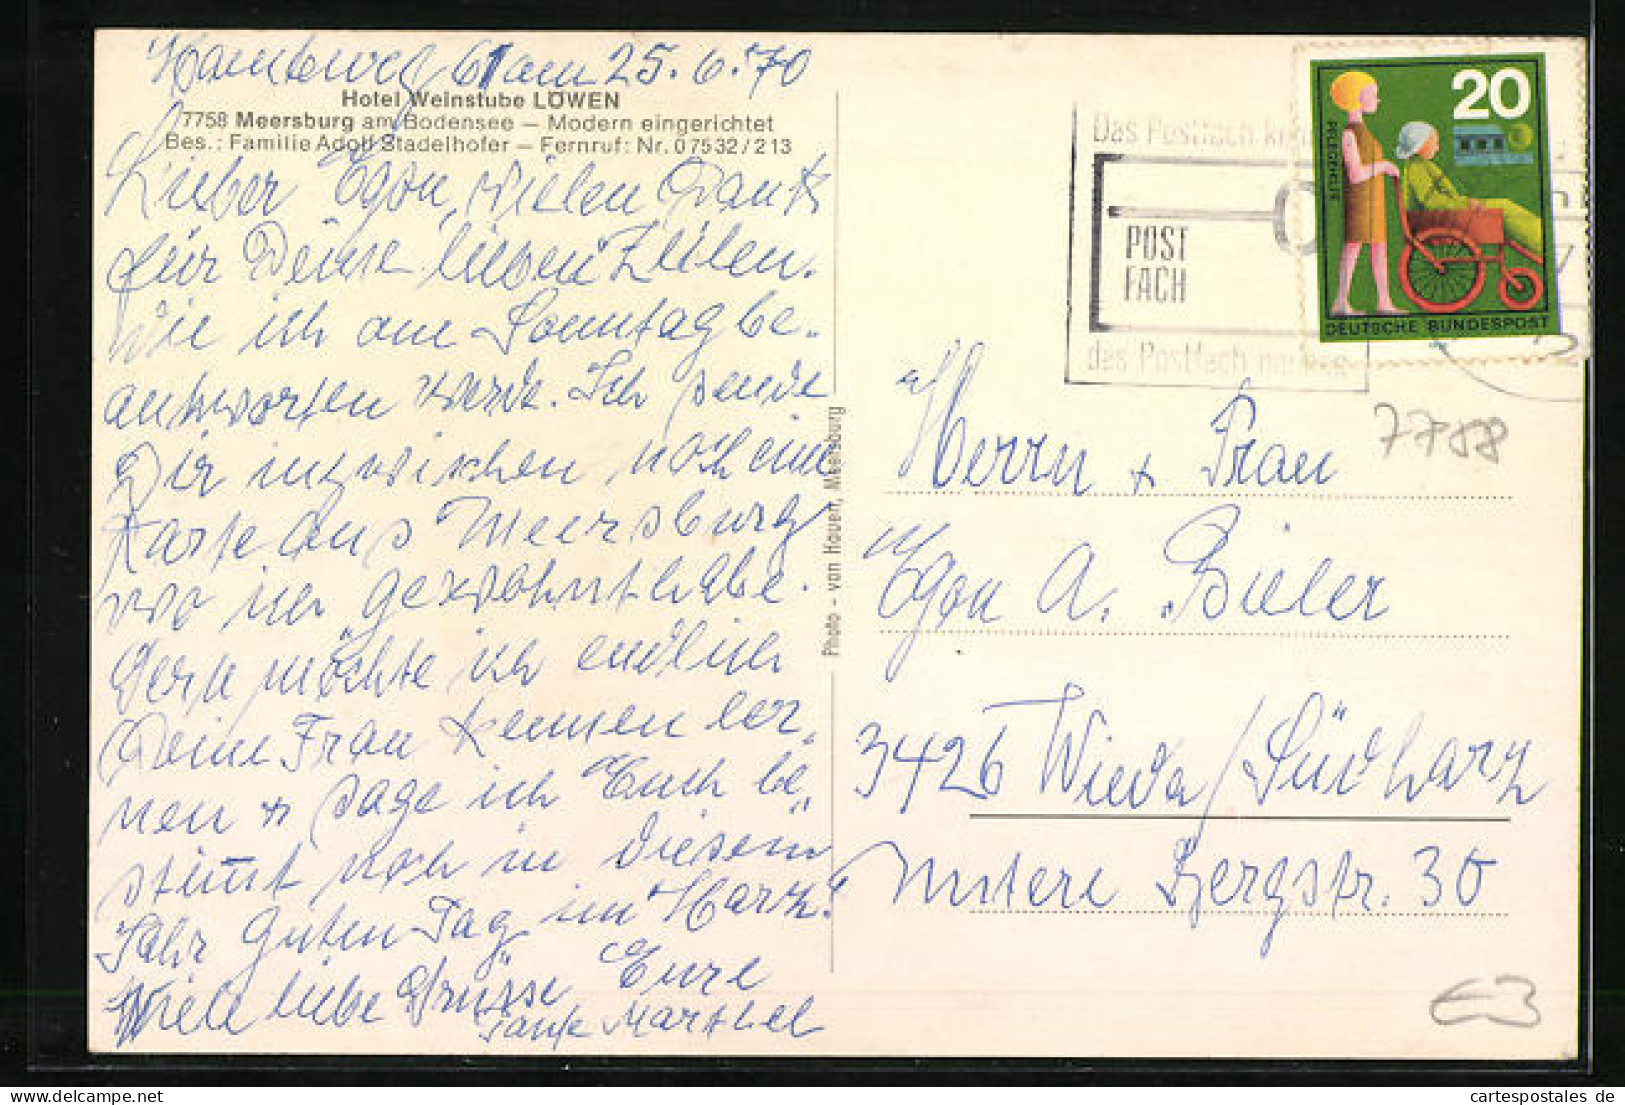 am 25.6.70
Hotel Weinstube LÖWEN
7758 Meersburg am Bodensee — Modern eingerichtet
Bes.: Familie Adolf Stadelhofer — Fernruf: Nr. 07532/213
Lieber Egon, vielen Dank
für Deine lieben Zeilen.
die ich am Sonntag be-
antworten werde. Ich sende
Dir inzwischen noch eine
Karte aus Meersburg
wo ich gewohnt habe.
Gern möchte ich endlich
Deine Frau kennen ler-
nen + sage ich Euch be-
stimmt noch in diesem
Jahr Guten Tag im Harz.
Viele liebe Grüsse Eure
Tante Marthel
Photo - von Hauen, Meersburg
Das Postfach
POST
FACH
das Postfach
20
PFLEGEHILFE
DEUTSCHE BUNDESPOST
7758
Herrn + Frau
Egon A. Bieler
3426 Wieda/Südharz
Untere Bergstr. 30
€3
cartespostales de